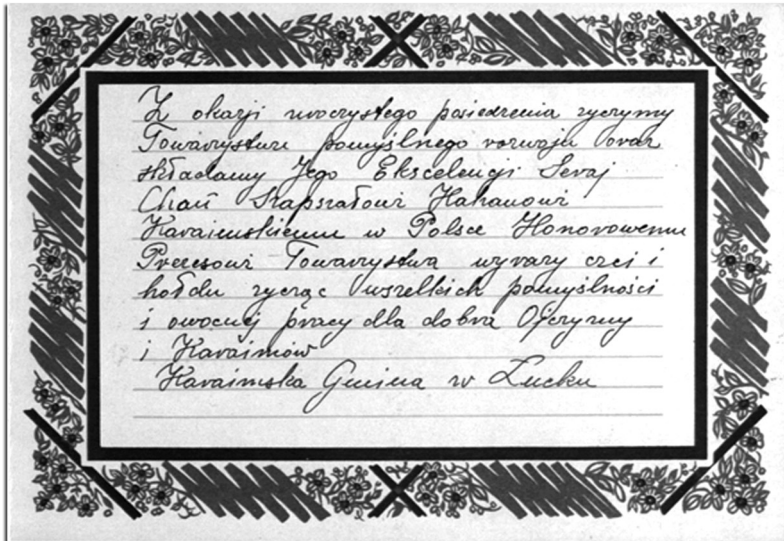 Z okazji uroczystego posiedzenia życzymy
Towarzystwu pomyślnego rozwoju oraz
składamy Jego Ekscelencji Seraj
Chań Szapszałowi Hahanowi
Karaimskiemu w Polsce Honorowemu
Prezesowi Towarzystwa wyrazy czci i
hołdu życząc wszelkich pomyślności
i owocnej pracy dla dobra Ojczyzny
i Karaimów
Karaimska Gmina w Łucku